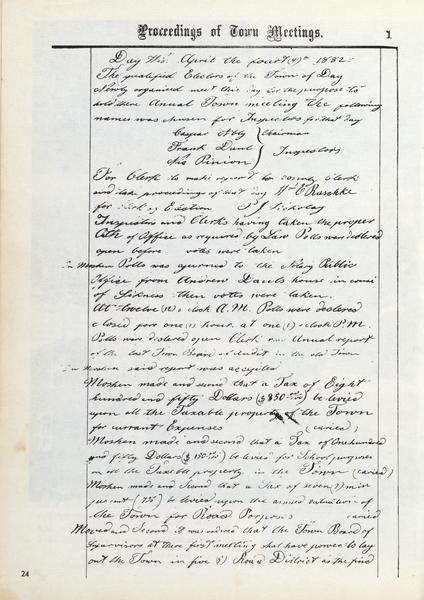 Proceedings of Town Meetings. 1
Day Wis. April the fourth (4)th 1882
The qualified Electors of the Town of Day
Newly organised meet this day for the purpose to
hold there Annual Town meeting the following
names was chosen for Inspectors for that day
Caspar Chairman
Frank Daul Inspectors
Pinion
For Clerk to make report to county Clerk
and take proceedings of that day Wm O Raschke
for Clerk of Election
Inspectors and Clerks having taken the proper
Oath of Office as required by Law Polls were declared
open before votes were taken
Polls was ajurned to the Notary Public
Office from Andrew Dauls house in
of Sickness then votes were taken.
At twelve (12) o clock A.M. Polls were declared
closed for one (1) hour. at one (1) o clock P.M.
Polls were declared open Clerk Annual report
of the last Town Board of Audit in the old Town
said report was accepted
Moshen made and second that a Tax of Eight
hundred and fifty Dollars ($850 ) be levied
upon all the Taxable property of the Town
for currant Expenses (caried)
Moshen made and second that a Tax of One hundred
and fifty Dollars ($150 ) be levied for School purposes
on all the Taxable property in the Town (caried)
Moshen made and Second that a Tax of seven (7) mm
per cent be levied upon the assessed valuation of
the Town for Road Purposes caried
Moved and Second it was ordered that the Town Board of
Supervisors at there first meeting shal have power to lay
out the Town in five (5) Road District as they find
24